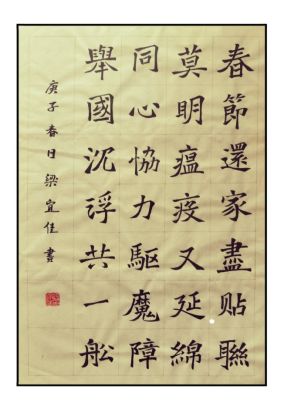 春節還家盡貼聯
莫明瘟疫又延綿
同心協力驅魔障
舉國沉浮共一船
庚子春日梁宜佳書